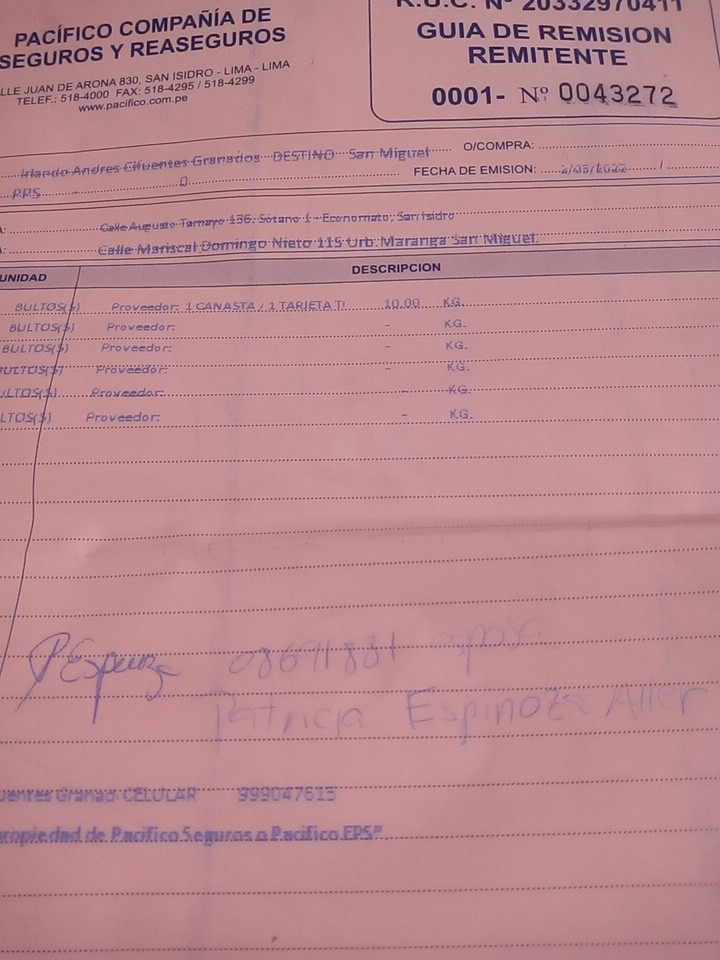 PACÍFICO COMPAÑÍA DE
SEGUROS Y REASEGUROS
LLE JUAN DE ARONA 830, SAN ISIDRO - LIMA - LIMA
TELEF.: 518-4000 FAX: 518-4295 / 518-4299
www.pacifico.com.pe
R.U.C. Nº 20332970411
GUIA DE REMISION
REMITENTE
0001- Nº 0043272
Irlando Andres Cifuentes Granados DESTINO San Miguel
O/COMPRA:
PPS 0
FECHA DE EMISION: 2/05/2022 /
Calle Augusto Tamayo 136, Sotano 1 - Economato, San Isidro
Calle Mariscal Domingo Nieto 115 Urb. Maranga San Miguel.
UNIDAD DESCRIPCION
BULTOS(S) Proveedor: 1 CANASTA / 1 TARJETA TI 10.00 KG.
BULTOS(S) Proveedor: - KG.
BULTOS(S) Proveedor: - KG.
BULTOS(S) Proveedor: - KG.
ULTOS(S) Proveedor: - KG.
LTOS(S) Proveedor: - KG.
PEspinoza 08691881 esposa
Patricia Espinoza Aller
uentes Granad CELULAR 999047615
ropiedad de Pacifico Seguros o Pacifico EPS"